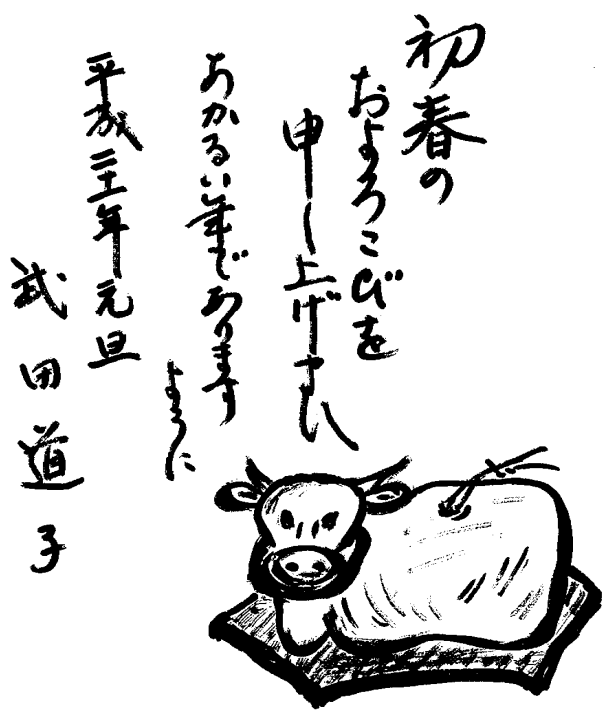 初春の
およろこびを
申し上げます
あかるい年であります
ように
平成二十一年元旦
武田道子